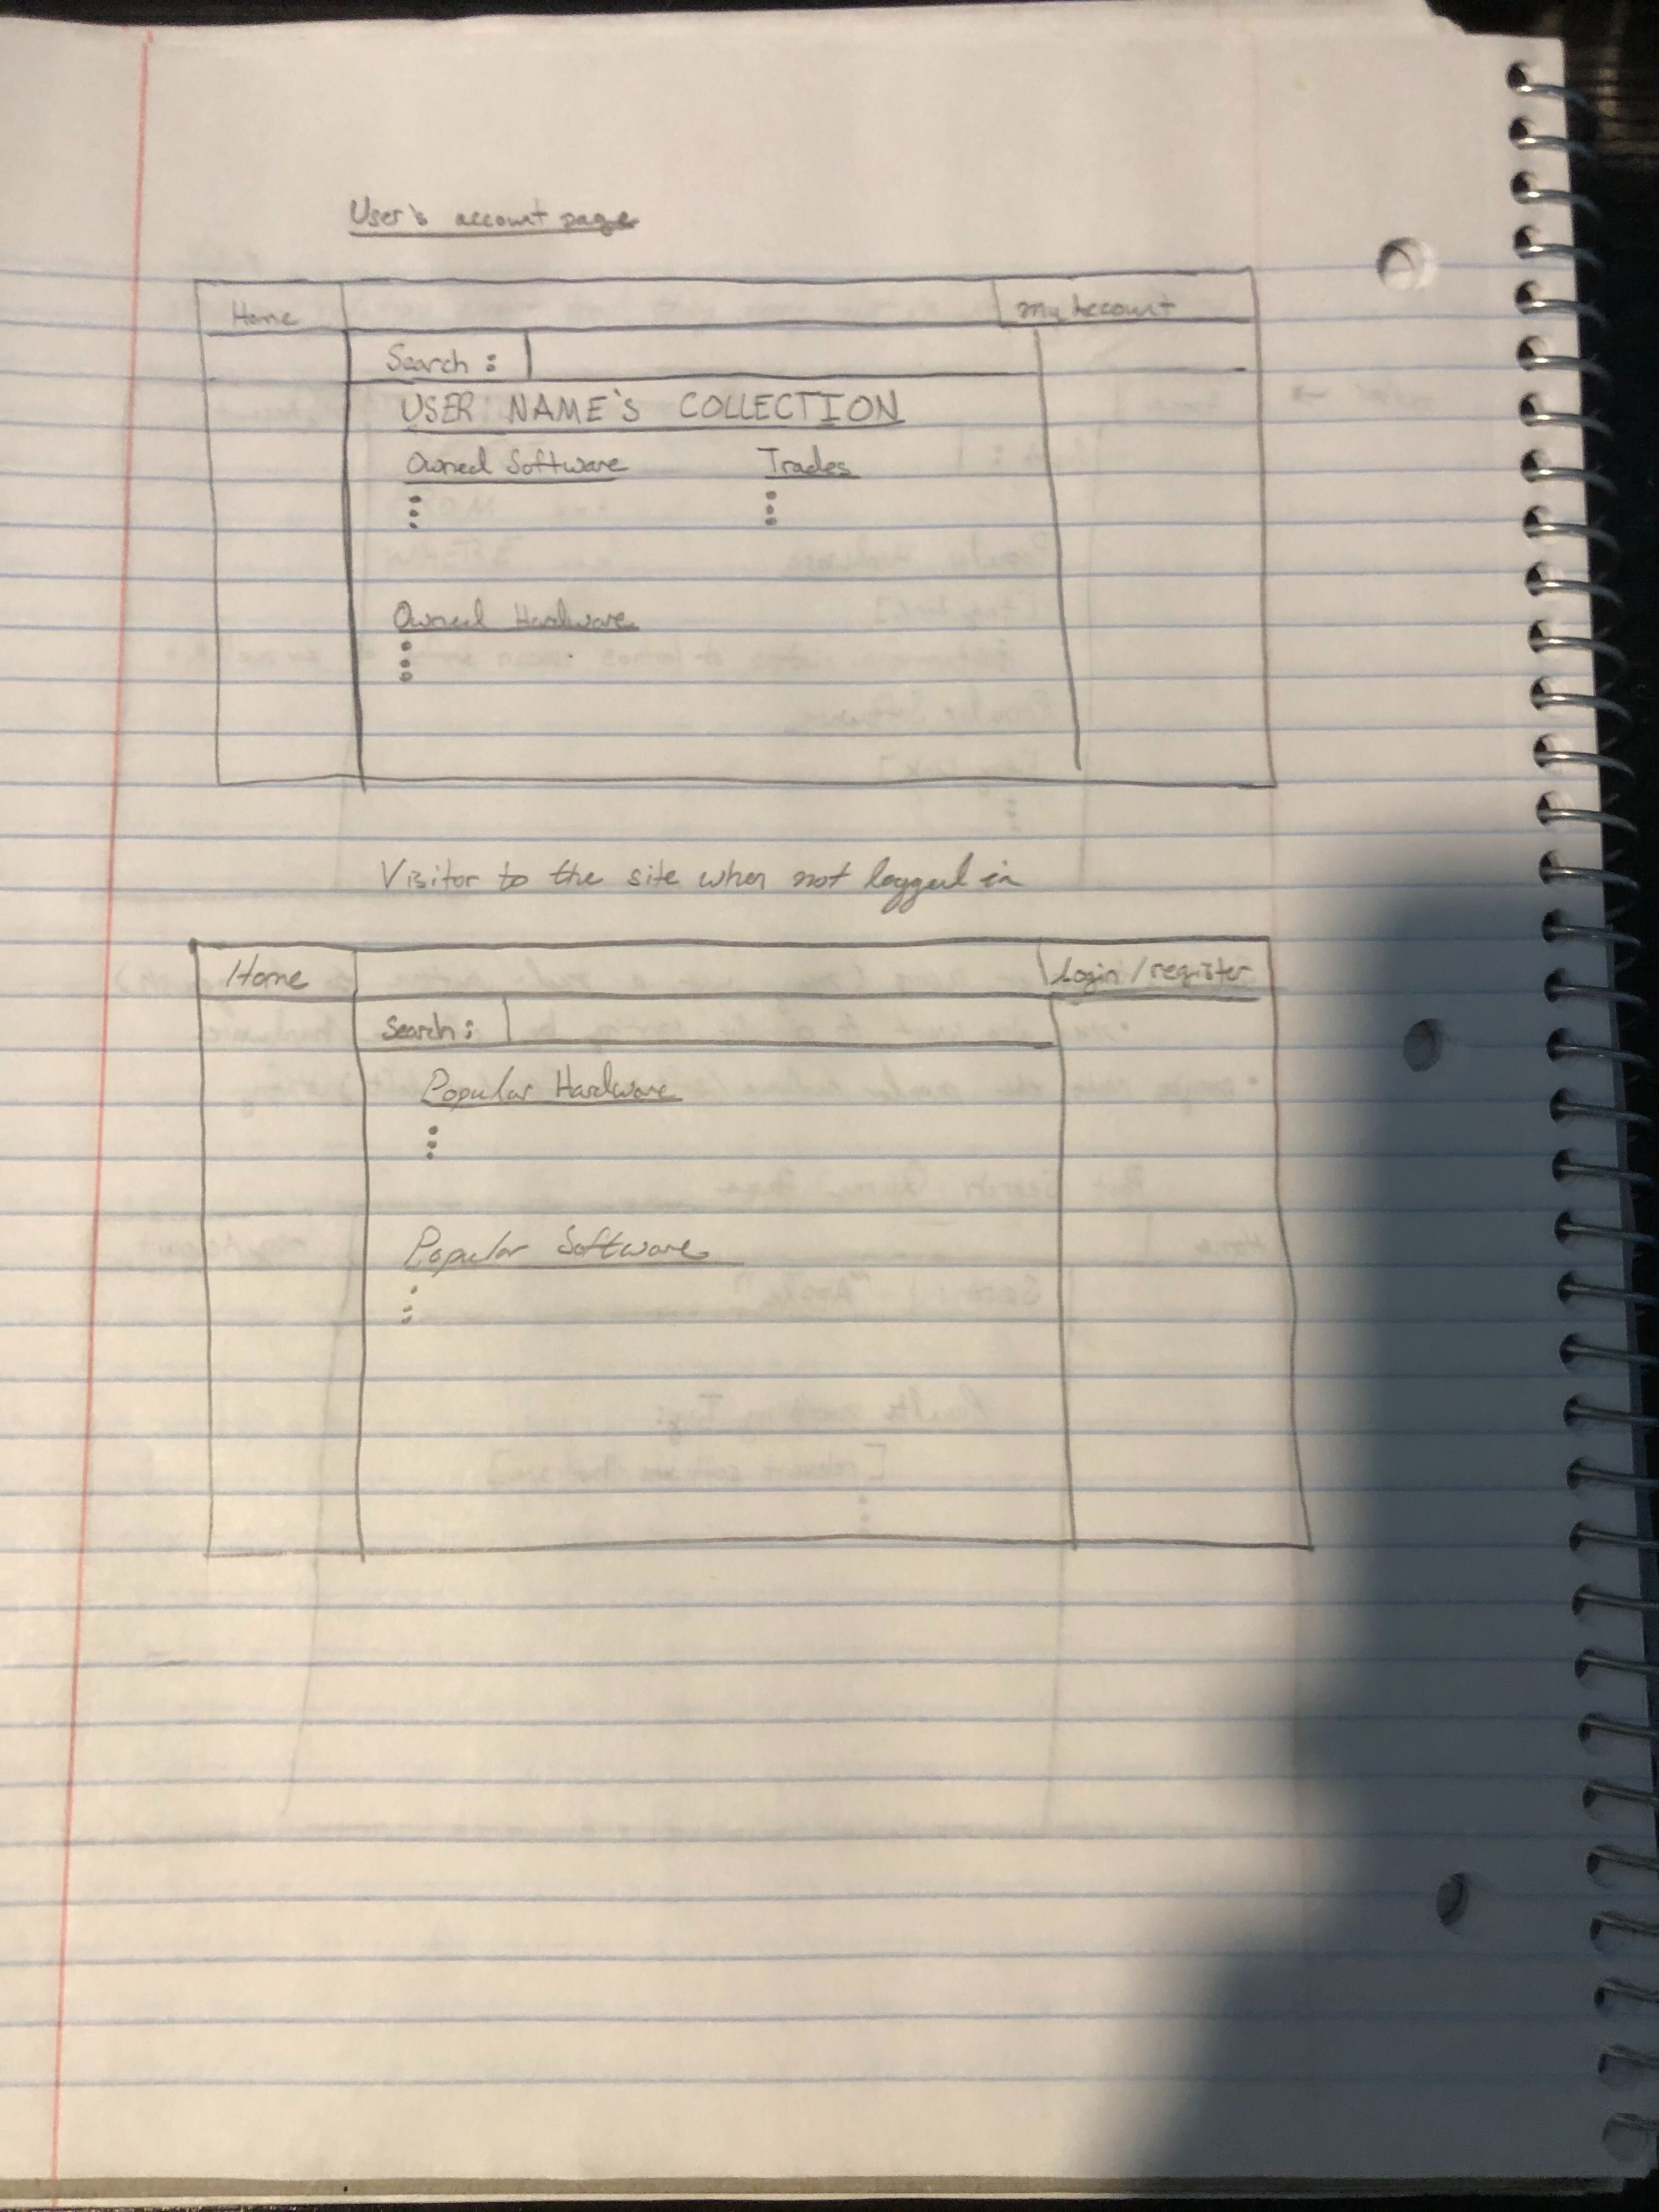 User's account page
Home my Account
Search :
USER NAME'S COLLECTION
Owned Software Trades
Owned Hardware
Visitor to the site when not logged in
Home Login / register
Search :
Popular Hardware
Popular Software